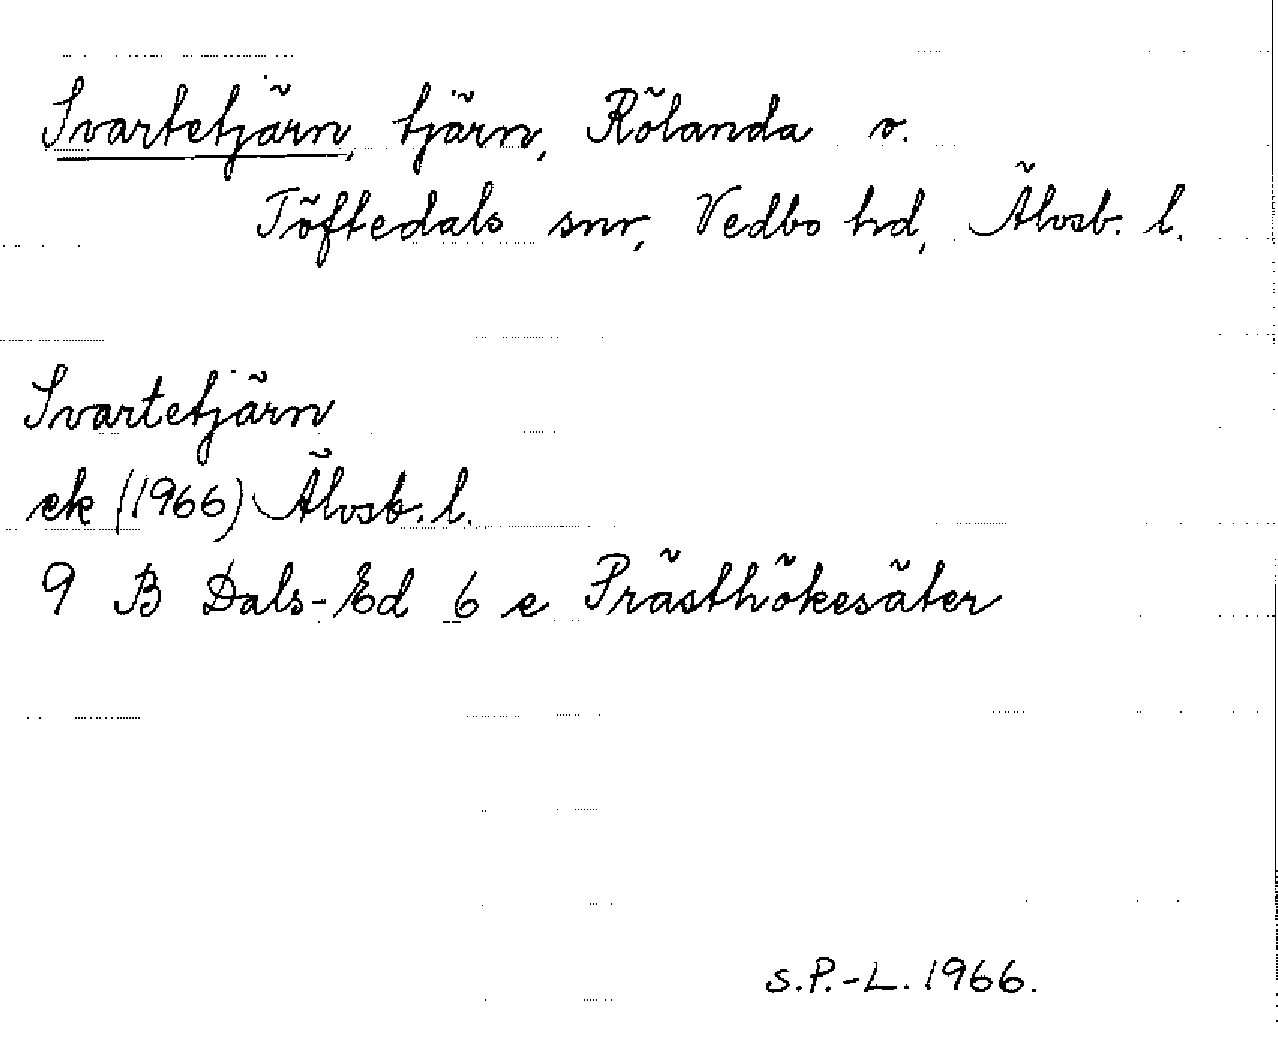 Svartetjärn, tjärn, Rölanda o.
Töftedals snr, Vedbo hd, Älvsb. l.
Svartetjärn
ek (1966) Älvsb. l.
9 B Dals-Ed 6 e Prästhökesäter
S.P.-L. 1966.